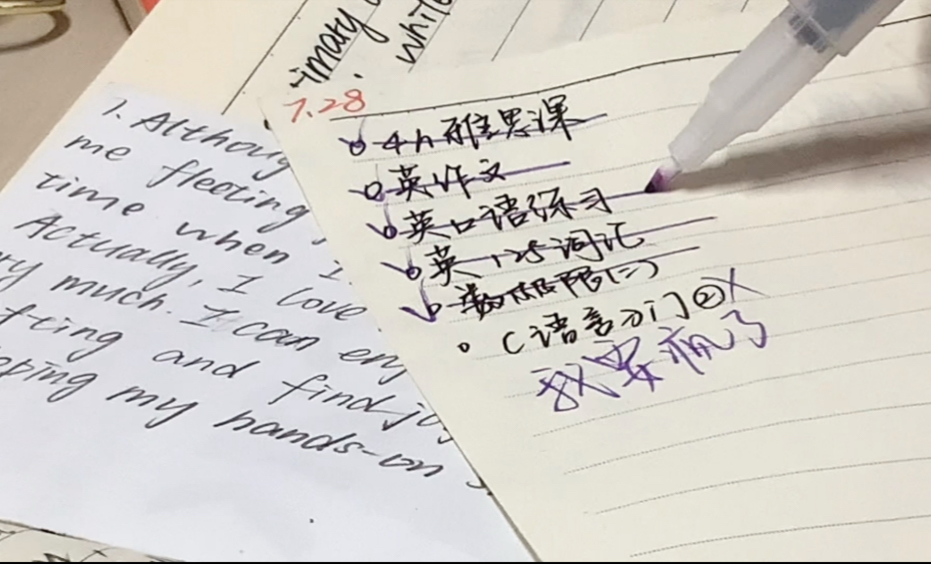 1. Althoug
me fleeting
time when I
Actually, I love
ry much. I can enj
fting and find joy
ping my hands-on s
imary
white
7.28
4h雅思课
英作文
英口语练习
英125词汇
数极限(二)
C语言入门②X
我要疯了